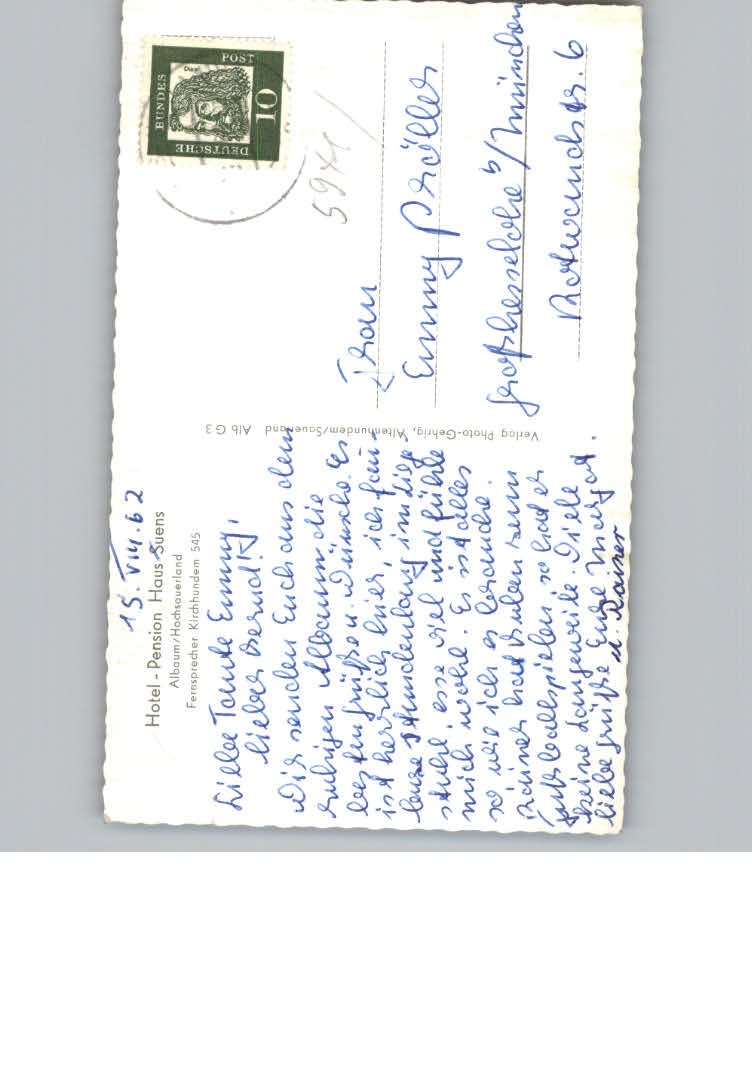 15. VIII. 62
Hotel - Pension Haus Suens
Albaum/Hochsauerland
Fernsprecher Kirchhundem 545
Liebe Tante Emmy,
lieber Bernd!
Wir senden Euch aus dem
ruhigen Albaum die
besten Grüße u. Wünsche. Es
ist herrlich hier, ich fau-
lenze stundenlang im Liege-
stuhl esse viel und fühle
mich wohl. Es ist alles
so wie ich es brauche.
Rainer hat Buben zum
Fußballspielen so hat er
keine Langeweile. Viele
liebe Grüße Eure Margot.
u. Rainer
Verlag Photo-Gehrig, Altenhundem/Sauerland Alb G 3
DEUTSCHE
BUNDES
POST
10
Dürer
5941
Frau
Emmy
Großhesselohe b/München
Rotwandstr. 6